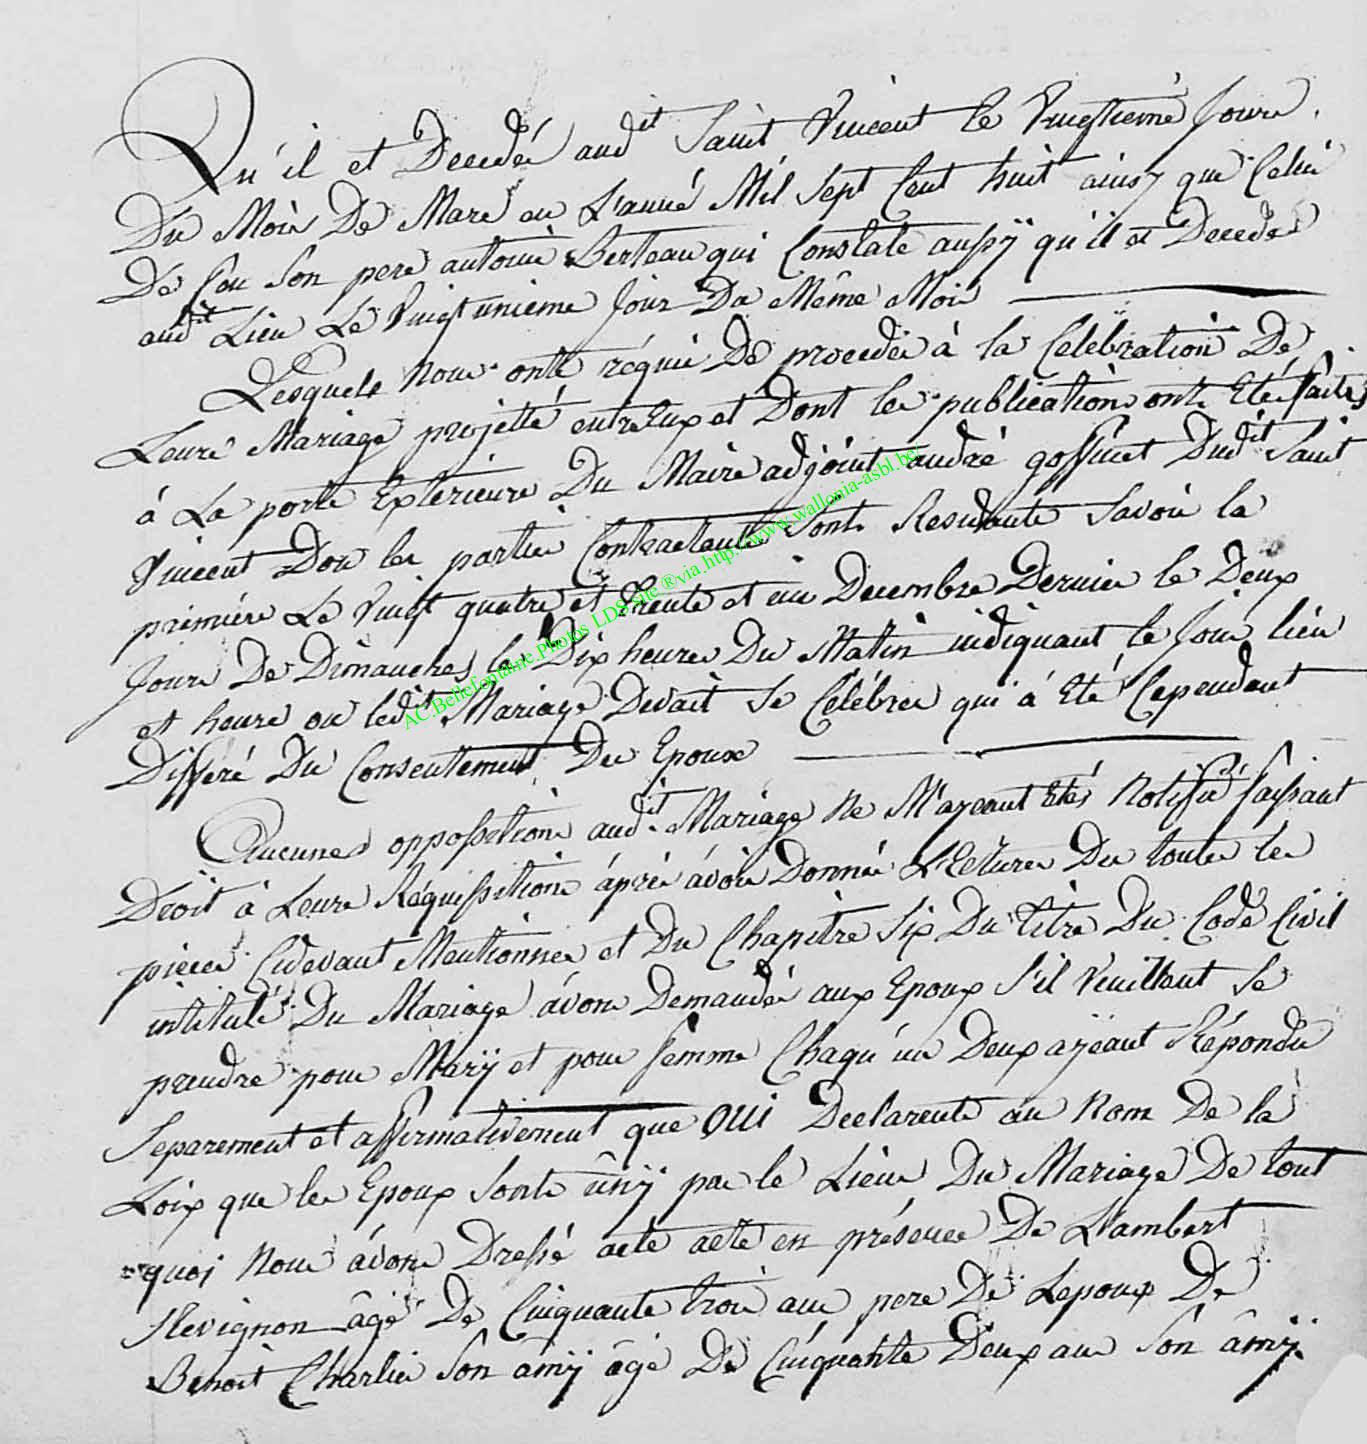 Qu'il et Decedé aud.it Saint Vincent le Vingtieme Jours
Du Mois De Mars en L'anné Mil Sept Cent huit ainsy que Celui
De feu Son pere antoine Berteau qui Constate aussÿ qu'il et Decedé
aud.it Lieu Le Vingt unieme Jour Du Même Mois
Lesquels Nous ont réquis De proceder à la Celébration De
Leurs Mariage projetté entre Eux et Dont les publications ont Eté faites
à La porte Exterieure Du Maire adjoint andré gossinet Dud.it Saint
Vincent Dou les parties Contractante Sont Residante Savoir la
première Le Vingt quatre et trente et un Decembre Dernier le Deux
Jours De Dimanches à Dix heures Du Matin indiquant le Jour lieu
et heure ou led.it Mariage Devait Se Célébrer qui à Eté Cependant
Différé Du Consentement Des Epoux
Aucunes oppossitions aud.it Mariage Ne M'ayeant Etés Notifié faissant
Droit à Leurs Réquissitions áprés ávoir Donnée L'Ecture De toutes les
pièces Cidevant Mentionnés et Du Chapitre Six Du titre Du Code Civil
intitulé Du Mariage ávons Demandés aux Epoux S'il Veuillent Se
prendre pour Marÿ et pour femme Chaqu'un Deux ayëant Répondu
Separement et affirmativement que OUI Declarents au Nom De la
Loix que les Epoux Sonts ûnÿ par le Lien Du Mariage De tout
quoi Nous ávons Dressé acte acte en présence De Lambert
Hevignon âgé De Cinquante trois ans pere De Lepoux De
Benoit Charlier Son âmÿ âgé De Cinquante Deux ans Son âmÿ
AC.Bellefontaine.Photos LDS site ® via http://www.wallonia-asbl.be/